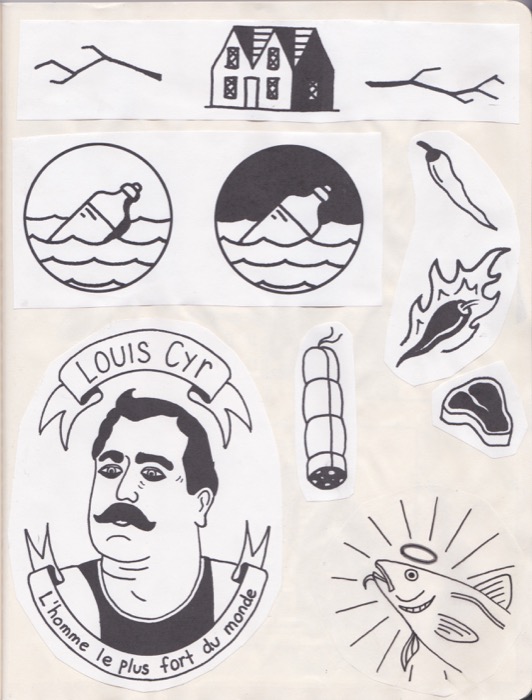 Louis Cyr
L'homme le plus fort du monde